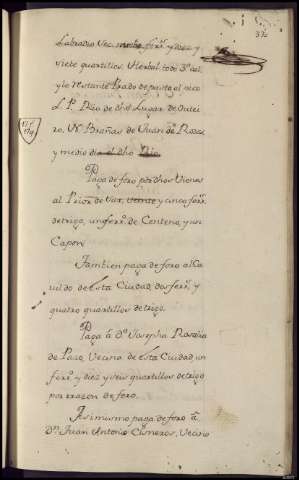 332
Labradio Vec. ferr.s y diez y
siete quartillos. Herbal todo
y lo restante Prado de pasto al seco
L.P. Rio de dho Lugar de Outei
ro, V. Brañas de Juan de Rosas
y medio dia el dho Rio
Paga de foro por dhos Vienes
al Prior de Sar, veinte y cinco ferr.s
de trigo, un ferr.o de Centeno, y un
Capon.
Tambien paga de foro al Ca
vildo de Esta Ciudad, dos ferr.s y
quatro quartillos de trigo.
Paga à D.a Josepha Rosalia
de Pazo, Vecina de Esta Ciudad, un
ferr.o y diez y seis quartillos de trigo
por razon de foro.
Asimismo paga de foro à
Dn. Juan Antonio Cisneros, Vecino